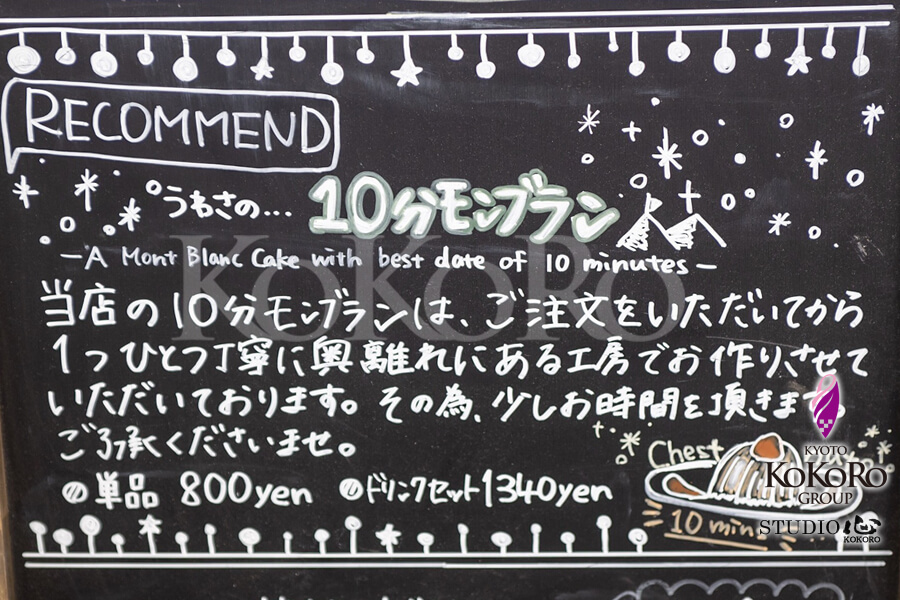 RECOMMEND
うわさの… 10分モンブラン
－A Mont Blanc Cake with best date of 10 minutes－
当店の10分モンブランは、ご注文をいただいてから
1つひとつ丁寧に奥離れにある工房でお作りさせて
いただいております。その為、少しお時間を頂きます。
ご了承くださいませ。
単品 800yen ドリンクセット1340yen
Chest
10 min
KOKORO
KYOTO
KOKORO
GROUP
STUDIO心
KOKORO